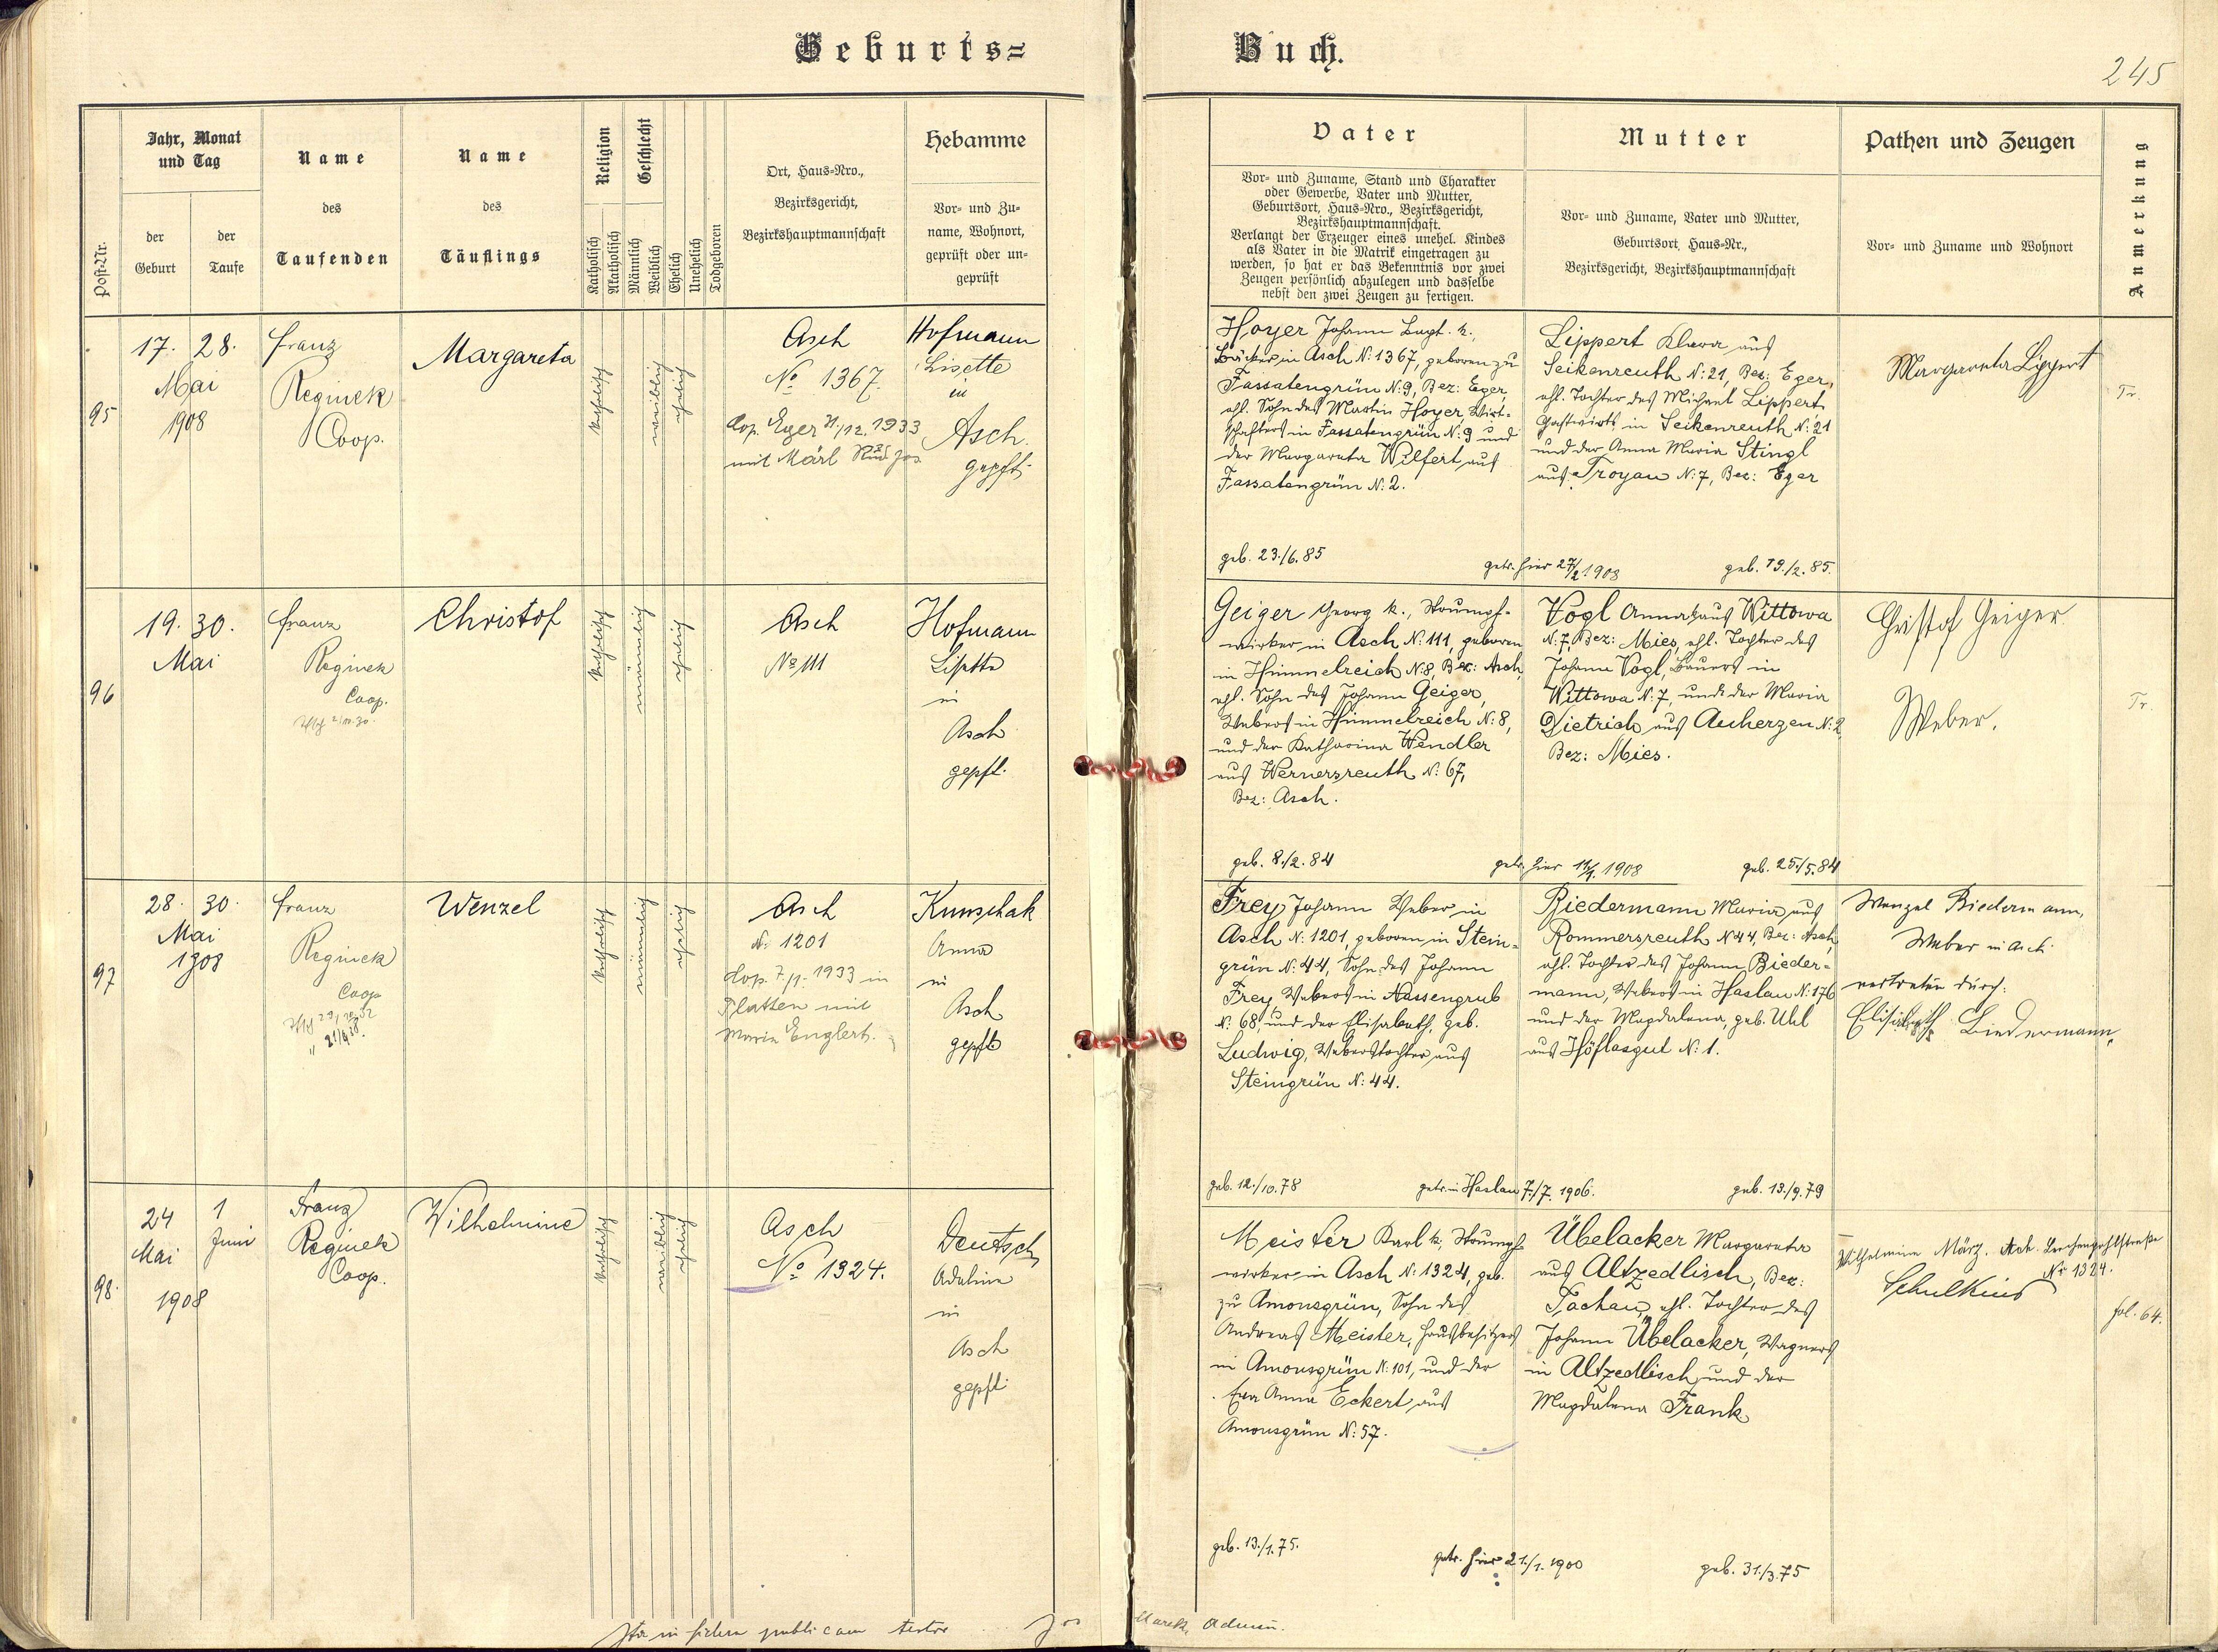 Geburts=
Buch.
245
Post-Nr.
Jahr, Monat
und Tag
der
Geburt
der
Taufe
Name
des
Taufenden
Name
des
Täuflings
Religion
Katholisch
Akatholisch
Geschlecht
Männlich
Weiblich
Ehelich
Unehelich
Todgeboren
Ort, Haus=Nro.,
Bezirksgericht,
Bezirkshauptmannschaft
Hebamme
Vor= und Zu=
name, Wohnort,
geprüft oder un=
geprüft
Vater
Vor= und Zuname, Stand und Charakter
oder Gewerbe, Vater und Mutter,
Geburtsort, Haus=Nro., Bezirksgericht,
Bezirkshauptmannschaft.
Verlangt der Erzeuger eines unehel. Kindes
als Vater in die Matrik eingetragen zu
werden, so hat er das Bekenntnis vor zwei
Zeugen persönlich abzulegen und dasselbe
nebst den zwei Zeugen zu fertigen.
Mutter
Vor= und Zuname, Vater und Mutter,
Geburtsort, Haus=Nr.,
Bezirksgericht, Bezirkshauptmannschaft
Pathen und Zeugen
Vor= und Zuname und Wohnort
Anmerkung
95
17. 28.
Mai
1908
Franz
Reginek
Coop.
Margareta
katholisch
weiblich
ehelich
Asch
No 1367.
Cop. Eger 31/12. 1933
mit Märl Rud Jos
Hofmann
Lisette
in
Asch.
gepft.
Hoyer Johann k.,
Bäcker in Asch N: 1367, geboren zu
Fassatengrün N: 9, Bez: Eger,
ehl. Sohn des Martin Hoyer, Wirt=
schafters in Fassatengrün N: 9 und
der Margareta Wilfert aus
Fassatengrün N: 2.
geb. 23./6. 85
getr. hier 27/2. 1908
geb. 19./2. 85.
Lippert Klara aus
Seikenreuth N: 21, Bez: Eger,
ehl. Tochter des Michael Lippert,
Gastwirts in Seikenreuth N: 21
und der Anna Maria Stingl
aus Troyau N: 7, Bez: Eger
Margareta Lippert
Tr.
96
19. 30.
Mai
Franz
Reginek
Coop.
Christof
katholisch
männlich
ehelich
Asch
No 111
Hofmann
Lisette
in
Asch
gepft.
Geiger Georg k., Strumpf=
wirker in Asch N: 111, geboren
in Himmelreich N: 8, Bez: Asch,
ehl. Sohn des Johann Geiger,
Webers in Himmelreich N: 8,
und der Katharina Wendler
aus Wernersreuth N: 67,
Bez: Asch.
geb. 8./2. 84
getr. hier 11/1. 1908
geb. 25./5. 84
Vogl Anna k. aus Wittowa
N: 7, Bez: Mies, ehl. Tochter des
Johann Vogl, Bauers in
Wittowa N: 7, und der Maria
Dietrich aus Auherzen N: 2
Bez: Mies.
Christof Geiger
Weber.
Tr.
97
28. 30.
Mai
1908
Franz
Reginek
Coop
Wenzel
katholisch
männlich
ehelich
Asch
N: 1201
Cop. 7./1. 1933 in
Platten mit
Maria Englert.
Kunschak
Anna
in
Asch
gepft
Frey Johann Weber in
Asch N: 1201, geboren in Stein=
grün N: 44, Sohn des Johann
Frey, Webers in Nassengrub
N: 68, und der Elisabeth, geb.
Ludwig, Weberstochter aus
Steingrün N: 44.
geb. 12./10. 78
getr. in Haslau 7./7. 1906.
geb. 13./9. 79
Biedermann Maria aus
Rommersreuth N 44, Bez: Asch,
ehl. Tochter des Johann Bieder=
mann, Webers in Haslau N: 176
und der Magdalena, geb. Uhl
aus Höflasgut N: 1.
Wenzel Biedermann,
Weber in Asch
vertreten durch:
Elisabeth Biedermann
98.
24 1
Mai Juni
1908
Franz
Reginek
Coop.
Wilhelmine
katholisch
weiblich
ehelich
Asch
No 1324.
Deutsch
Adeline
in
Asch
gepft
Meister Karl k., Strumpf=
wirker in Asch N: 1324, geb.
zu Amonsgrün, Sohn des
Andreas Meister, Hausbesitzers
in Amonsgrün N: 101, und der
Eva Anna Eckert aus
Amonsgrün N: 57.
geb. 13./1. 75.
getr. hier 21./1. 1900
geb. 31./3. 75
Übelacker Margareta
aus Altzedlisch, Bez:
Tachau, ehl. Tochter des
Johann Übelacker, Wagners
in Altzedlisch und der
Magdalena Frank
Wilhelmine März. Asch.
No 1324.
Schulkind
fol. 64.
Ita in fidem publicam testor Jos Marek, Admin.